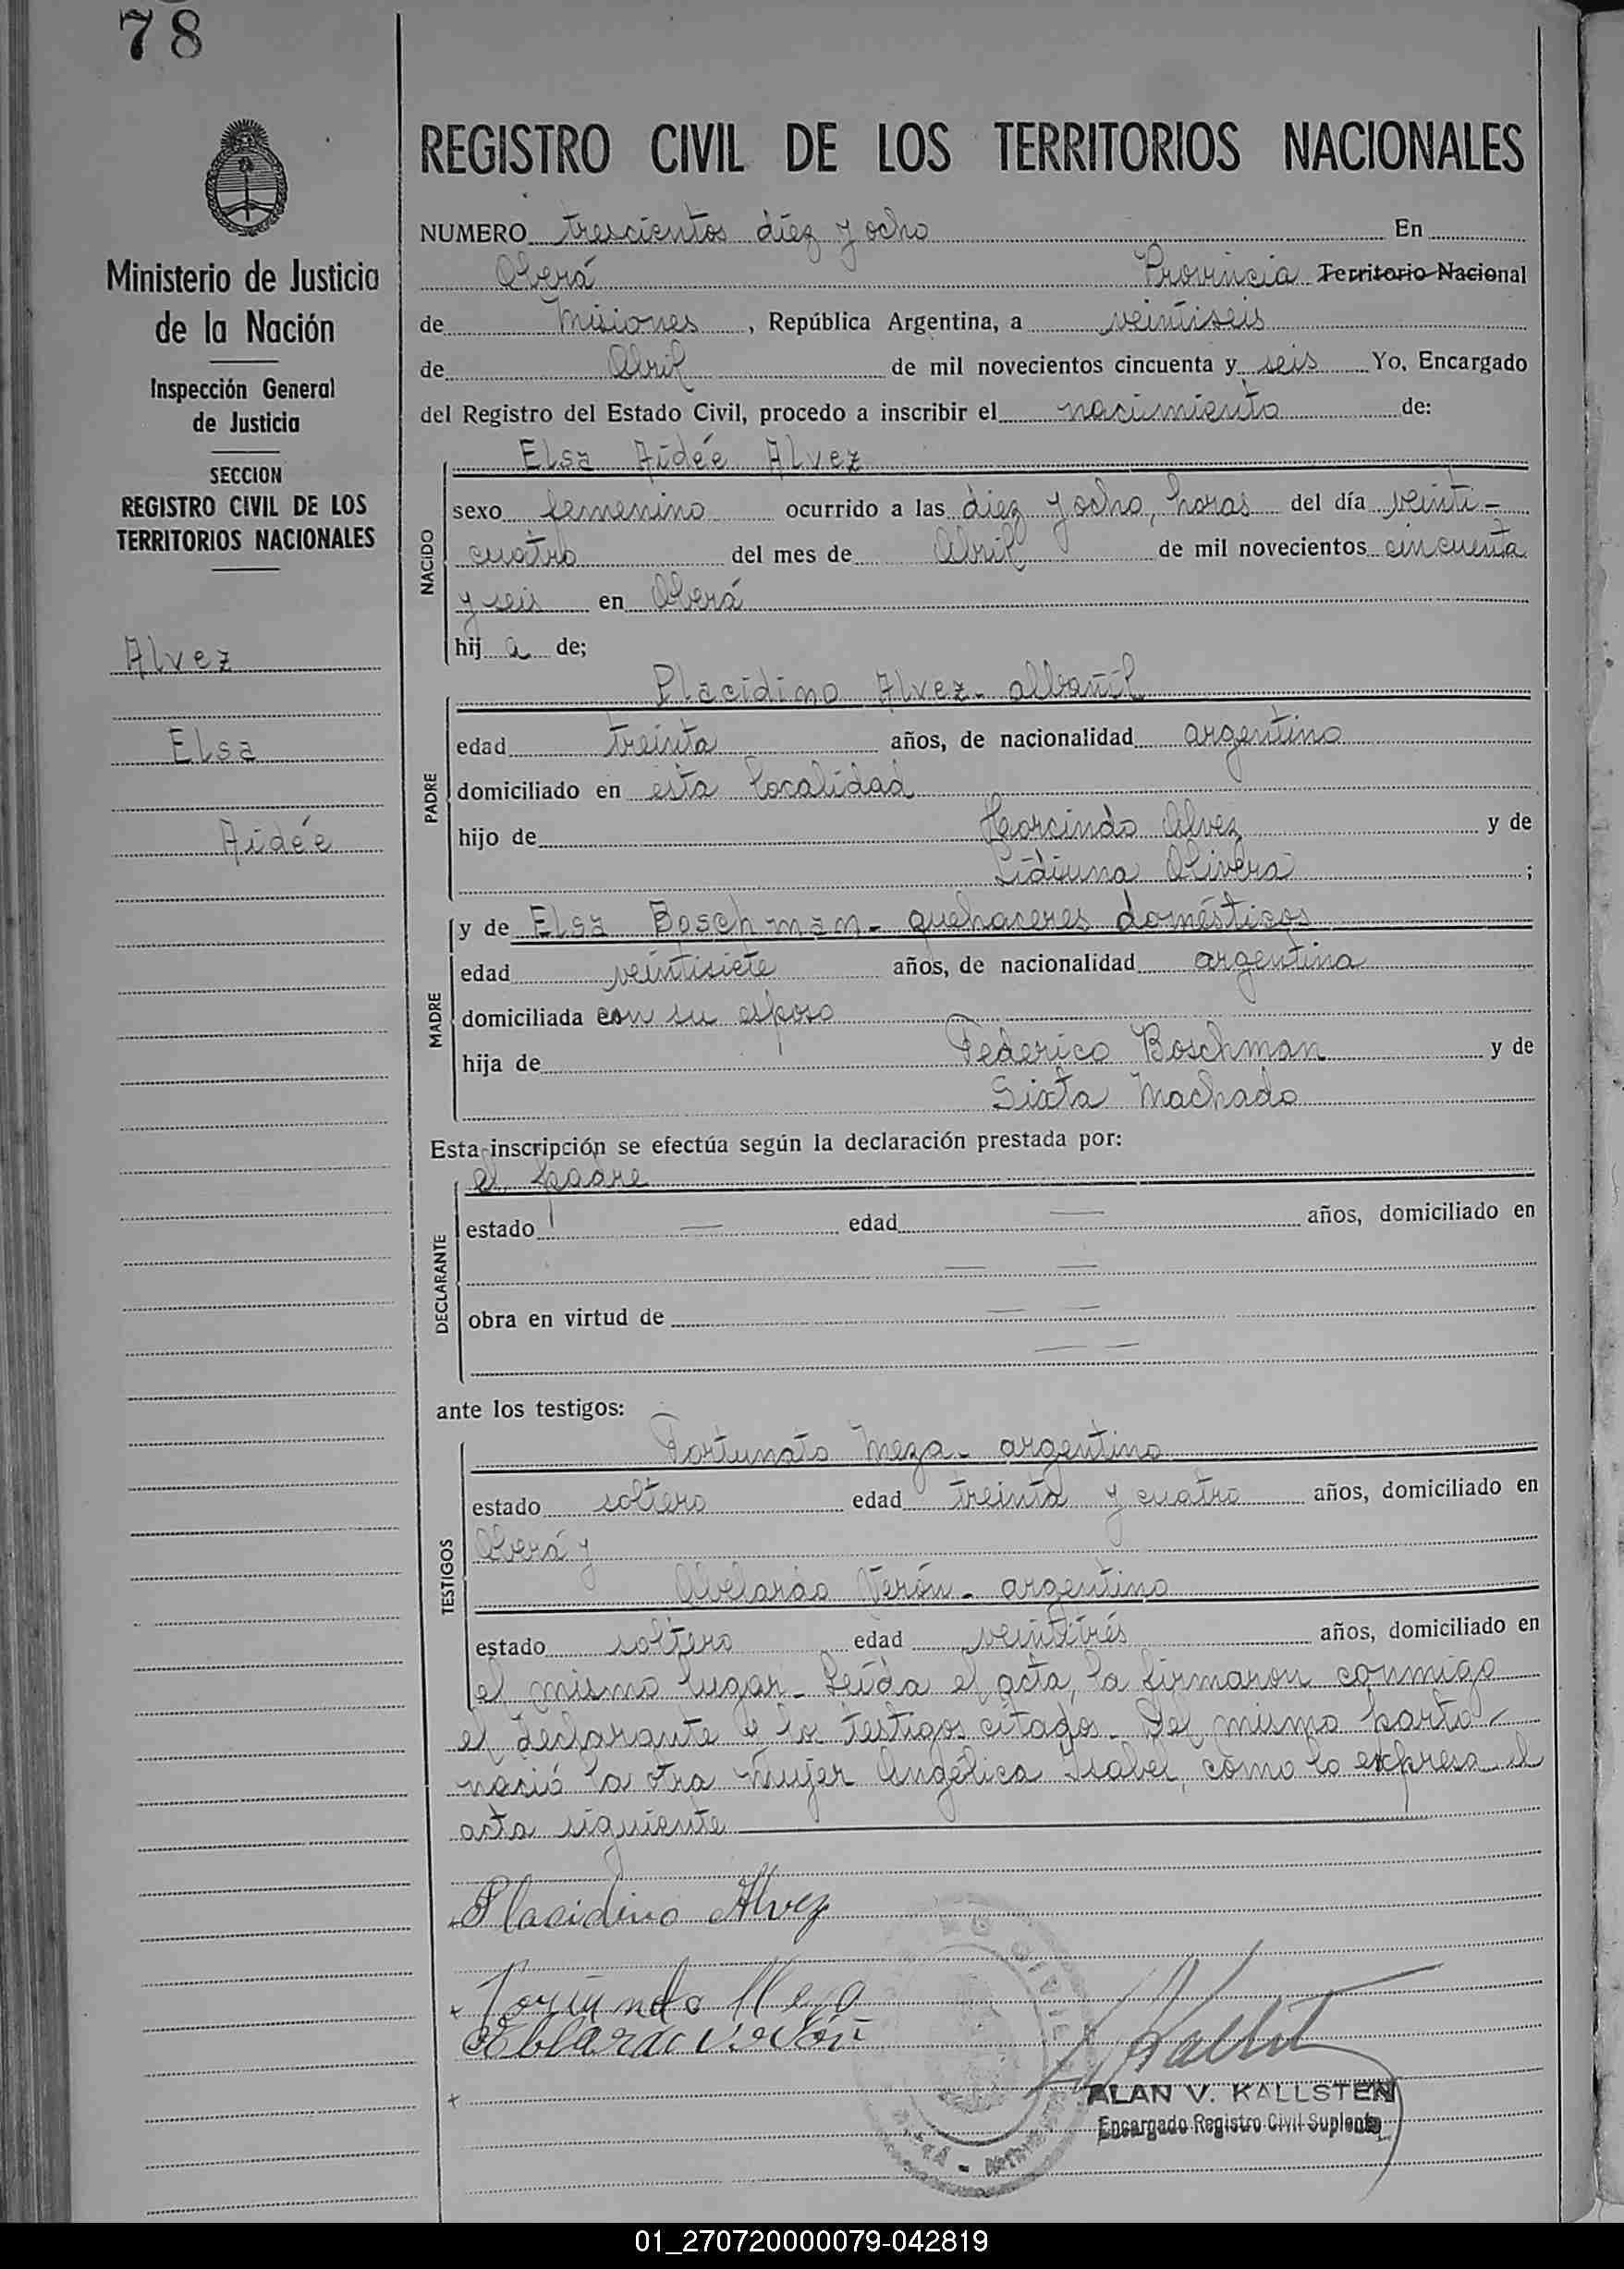 78
Ministerio de Justicia
de la Nación
Inspección General
de Justicia
SECCION
REGISTRO CIVIL DE LOS
TERRITORIOS NACIONALES
Alvez
Elsa
Aidée
REGISTRO CIVIL DE LOS TERRITORIOS NACIONALES
NUMERO trescientos diez y ocho En
Oberá Provincia Territorio Nacional
de Misiones, República Argentina, a veintiseis
de Abril de mil novecientos cincuenta y seis Yo, Encargado
del Registro del Estado Civil, procedo a inscribir el nacimiento de:
Elsa Aidée Alvez
NACIDO
sexo femenino ocurrido a las diez y ocho, horas del día veinti-
cuatro del mes de Abril de mil novecientos cincuenta
y seis en Oberá
hij a de;
Placidino Alvez - albañil
PADRE
edad treinta años, de nacionalidad argentino
domiciliado en esta localidad
hijo de Alvez y de
Olivera ;
y de Elsa Boschman - quehaceres domésticos
MADRE
edad veintisiete años, de nacionalidad argentina
domiciliada con su esposo
hija de Federico Boschman y de
Sixta Machado
Esta inscripción se efectúa según la declaración prestada por:
el padre
DECLARANTE
estado — edad — años, domiciliado en
— —
obra en virtud de — —
— —
ante los testigos:
Fortunato Meza - argentino
TESTIGOS
estado soltero edad treinta y cuatro años, domiciliado en
Oberá y
Abelardo Verón - argentino
estado soltero edad veintitrés años, domiciliado en
el mismo lugar - Leída el acta, la firmaron conmigo
el declarante y los testigos citados. Del mismo parto -
nació la otra mujer Angélica Isabel, como lo expresa el
acta siguiente
Placidino Alvez
Fortunato Meza
Verón
ALAN V. KALLSTEN
Encargado Registro Civil Suplente
01_270720000079-042819